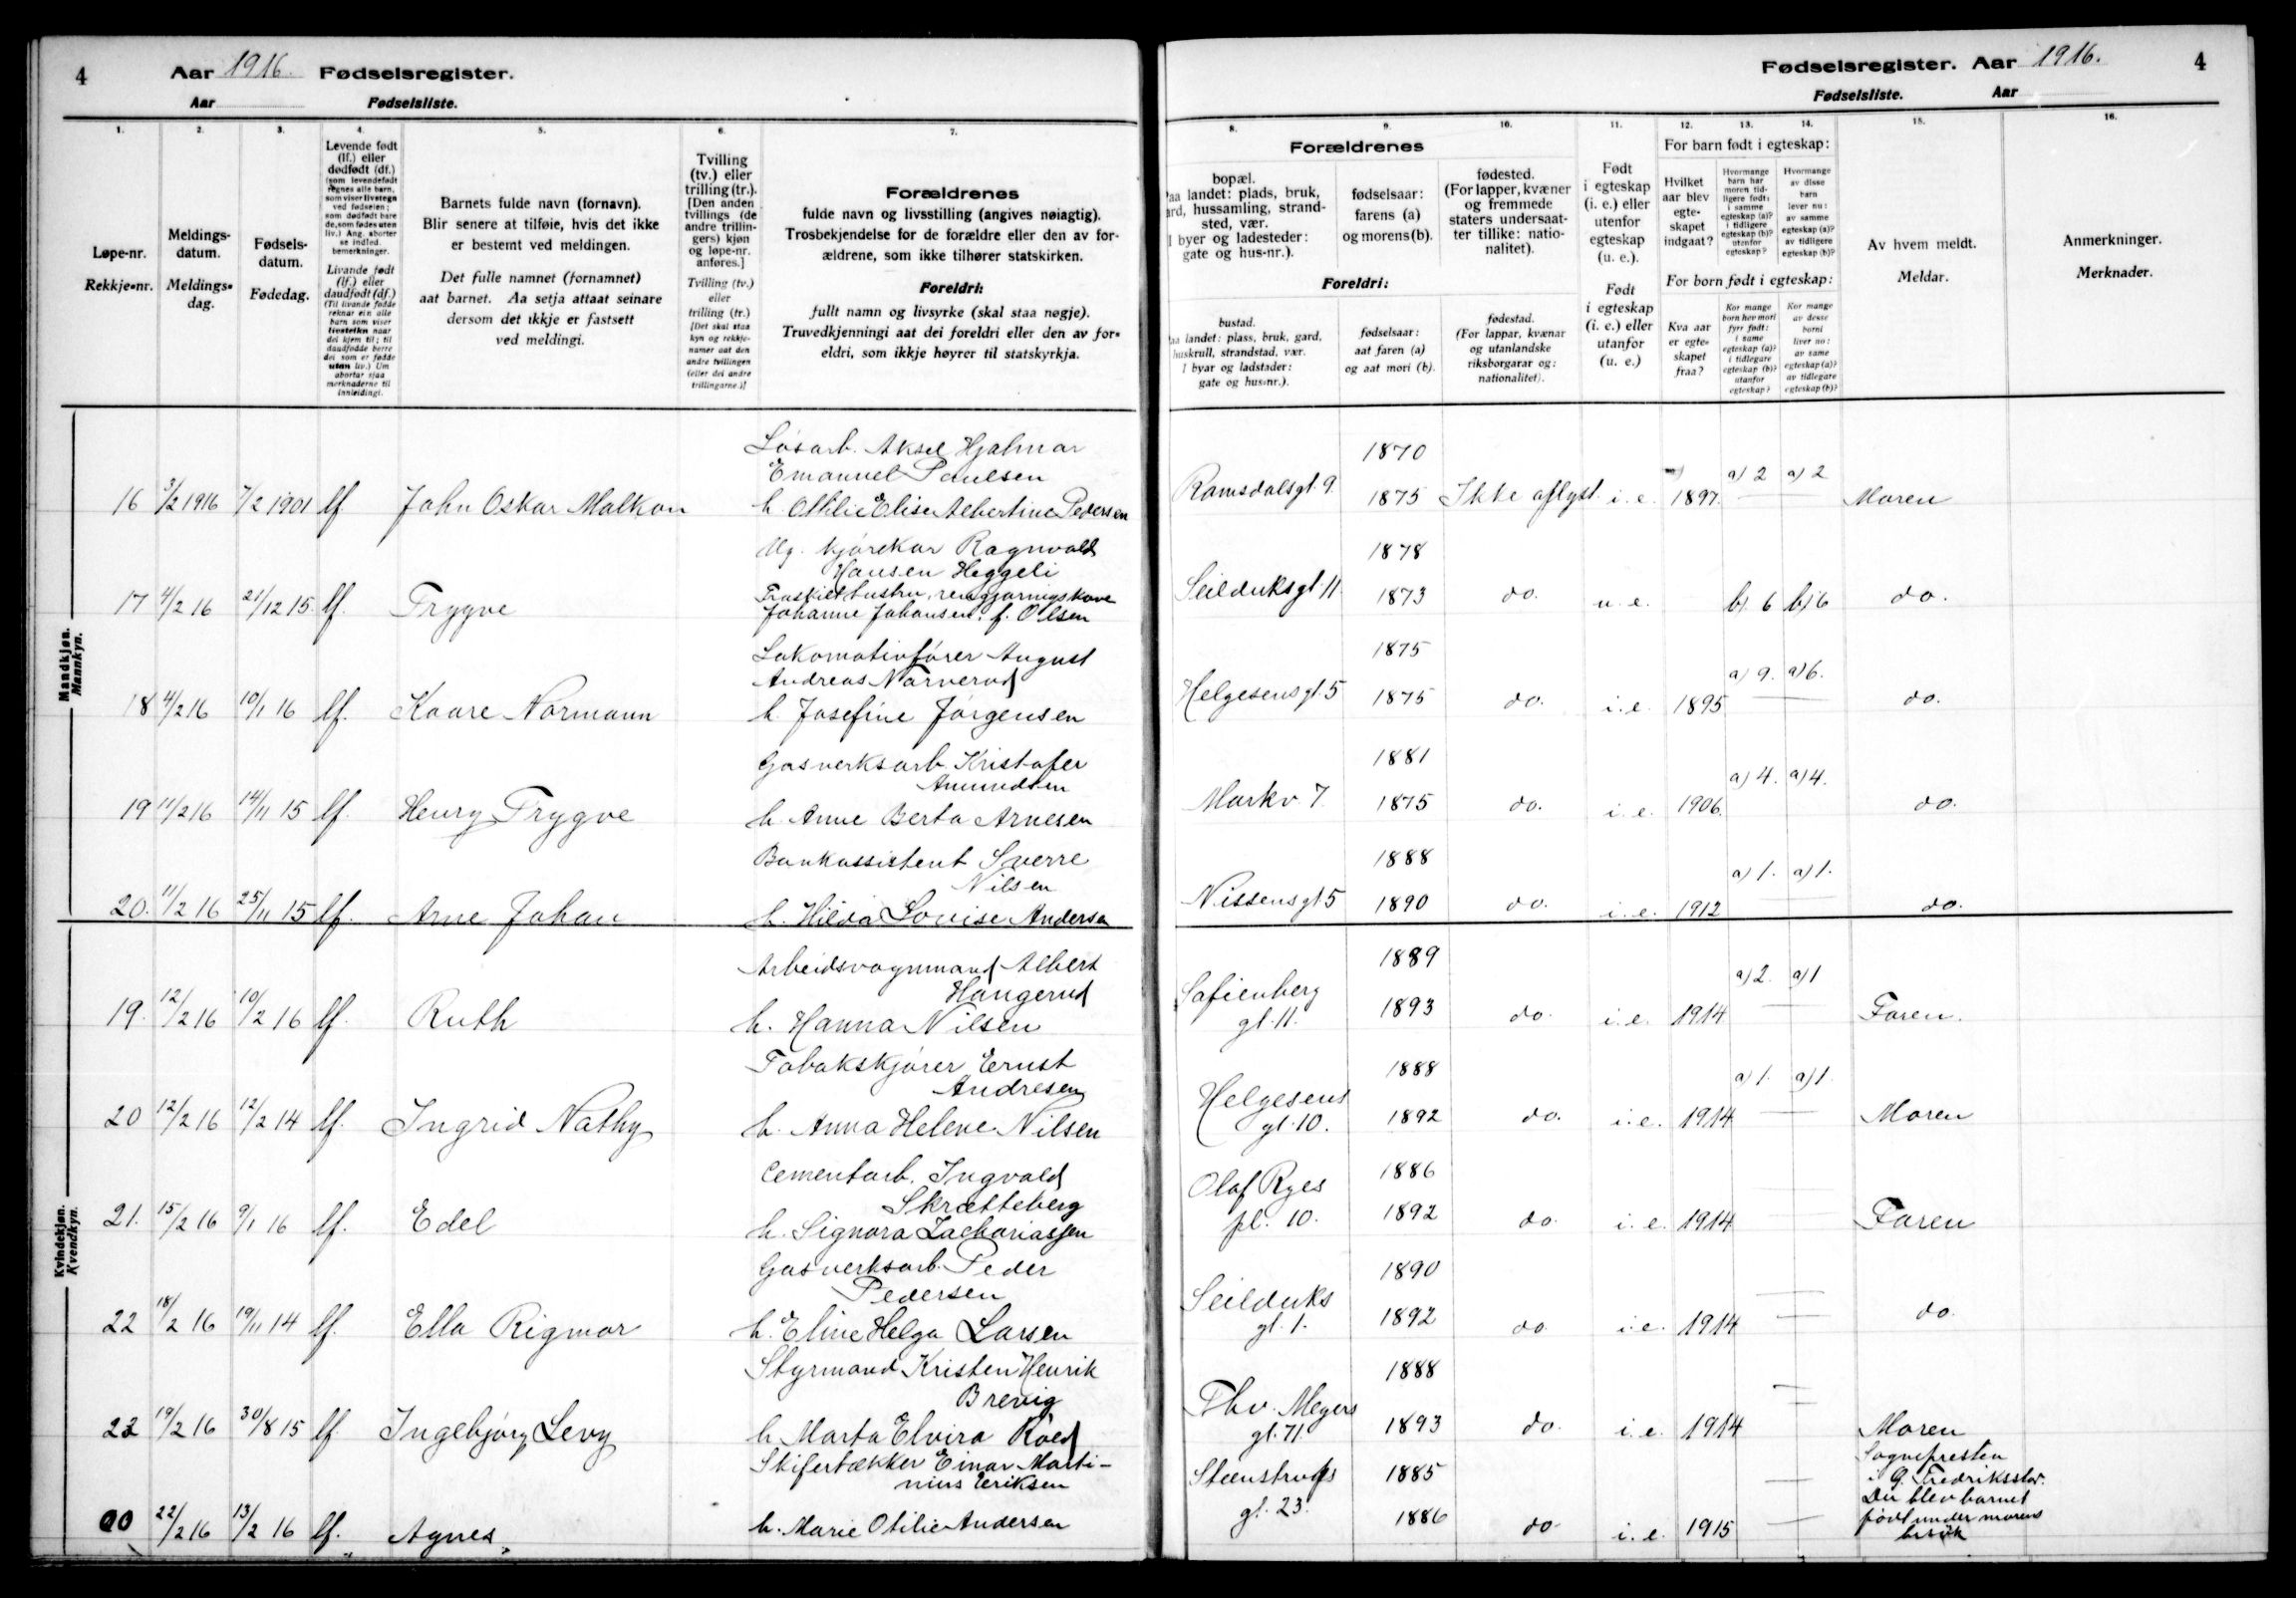 4 Aar 1916. Fødselsregister.
Aar Fødselsliste.
Fødselsregister. Aar 1916. 4
Fødselsliste. Aar
1. 2. 3. 4. 5. 6. 7.
Løpe-nr.
Rekkje-nr.
Meldings-
datum.
Meldings-
dag.
Fødsels-
datum.
Fødedag.
Levende født
(lf.) eller
dødfødt (df.)
(som levendefødt
regnes alle barn,
som viser livstegn
ved fødselen;
som dødfødt bare
de, som fødes uten
liv.) Ang. aborter
se indled.
bemerkninger.
Livande født
(lf.) eller
daudfødt (df.)
(Til livande fødde
reknar ein alle
barn som viser
livsteikn naar
dei kjem til; til
daudfødde berre
dei som er fødde
utan liv.) Um
abortar sjaa
merknaderne til
innleidingi.
Barnets fulde navn (fornavn).
Blir senere at tilføie, hvis det ikke
er bestemt ved meldingen.
Det fulle namnet (fornamnet)
aat barnet. Aa setja attaat seinare
dersom det ikkje er fastsett
ved meldingi.
Tvilling
(tv.) eller
trilling (tr.).
[Den anden
tvillings (de
andre trillin-
gers) kjøn
og løpe-nr.
anføres.]
Tvilling (tv.)
eller
trilling (tr.)
[Det skal staa
kyn og rekkje-
namer aat den
andre tvillingen
(eller dei andre
trillingarne.)]
Forældrenes
fulde navn og livsstilling (angives nøiagtig).
Trosbekjendelse for de forældre eller den av for-
ældrene, som ikke tilhører statskirken.
Foreldri:
fullt namn og livsyrke (skal staa nøgje).
Truvedkjenningi aat dei foreldri eller den av for-
eldri, som ikkje høyrer til statskyrkja.
8. 9. 10. 11. 12. 13. 14. 15. 16.
Forældrenes
bopæl.
Paa landet: plads, bruk,
ard, hussamling, strand-
sted, vær.
I byer og ladesteder:
gate og hus-nr.).
fødselsaar:
farens (a)
og morens (b).
fødested.
(For lapper, kvæner
og fremmede
staters undersaat-
ter tillike: natio-
nalitet).
Foreldri:
bustad.
aa landet: plass, bruk, gard,
huskrull, strandstad, vær.
I byar og ladstader:
gate og hus-nr.).
fødselsaar:
aat faren (a)
og aat mori (b).
fødestad.
(For lappar, kvænar
og utanlandske
riksborgarar og:
nationalitet).
Født
i egteskap
(i. e.) eller
utenfor
egteskap
(u. e.).
Født
i egteskap
(i. e.) eller
utanfor
(u. e.)
For barn født i egteskap:
Hvilket
aar blev
egte-
skapet
indgaat?
Hvormange
barn har
moren tid-
ligere født:
i samme
egteskap (a)?
i tidligere
egteskap (b)?
utenfor
egteskap?
Hvormange
av disse
barn
lever nu:
av samme
egteskap (a)?
av tidligere
egteskap (b)?
For born født i egteskap:
Kva aar
er egte-
skapet
fraa?
Kor mange
born hev mori
fyrr født:
i same
egteskap (a)?
i tidlegare
egteskap (b)?
utanfor
egteskap?
Kor mange
av desse
borni
liver no:
av same
egteskap (a)?
av tidlegare
egteskap (b)?
Av hvem meldt.
Meldar.
Anmerkninger.
Merknader.
Mandkjøn.
Mannkyn.
Løsarb. Aksel Hjalmar
Emanuel Paulsen 1870
16 3/2 1916 7/2 1901 lf John Oskar Malkon h. Othilie Elise Albertine Pedersen Ramsdalsgt. 9. 1875 Ikke oflyst. i. e. 1897. a) 2 a) 2 Moren
Ug. kjørekar Ragnvald
Hansen Heggeli 1878
17 4/2 16 21/12 15. lf. Trygve Fraskilt hustru, rengjøringskone
Johanne Johansen, f. Olsen Seilduksgt. 11. 1873 do. u. e. b). 6 b) 6 do.
Lokomotivfører August
Andreas Narverud 1875
18 4/2 16 10/1 16 lf. Kaare Normann h. Josefine Jørgensen Helgesensgt. 5 1875 do. i. e. 1895 a) 9. a) 6. do.
Gasverksarb. Kristofer
Amundsen 1881
19 11/2 16 14/11 15 lf. Henry Trygve h. Anne Berta Arnesen Markv 7. 1875 do. i. e. 1906. a) 4. a) 4. do.
Bankassistent Sverre
Nilsen 1888
20. 11/2 16 25/11 15 lf. Arne Johan h. Hilda Lovise Andersen Nissensgt 5 1890 do. i. e. 1912 a) 1. a) 1. do.
Kvindekjøn.
Kvendkyn.
Arbeidsvognmand Albert
Haugerud 1889
19. 12/2 16 10/2 16 lf. Ruth h. Hanna Nilsen Sofienberg
gt. 11. 1893 do. i. e. 1914 a) 2. a) 1 Faren.
Tobakskjører Ernst
Andresen 1888
20 12/2 16 12/2 14 lf. Ingrid Nathy h. Anna Helene Nilsen Helgesens
gt. 10. 1892 do. i. e. 1914 a) 1. a) 1. Moren
Cementarb. Ingvald
Skrætteberg 1886
21. 15/2 16 9/1 16 lf. Edel h. Signora Zachariassen Olaf Ryes
pl. 10. 1892 do. i. e. 1914 Faren
Gasverksarb. Peder
Pedersen 1890
22 18/2 16 19/11 14 lf. Ella Rigmor h. Eline Helga Larsen Seilduks
gt. 1. 1892 do. i. e. 1914 do.
Styrmand Kristen Henrik
Brevig 1888
23 19/2 16 30/8 15 lf. Ingebjørg Levy h. Marta Elvira Røed Thv. Meyers
gt. 71. 1893 do. i. e. 1914 Moren
Skifertækker Einar Marti-
nius Eriksen 1885
00 22/2 16 13/2 16 lf. Agnes h. Marie Otilie Andersen Steenstrups
gt. 23. 1886 do i. e. 1915 Sognepresten
i G. Fredrikstad.
Du blev barnet
født under morens
besøk